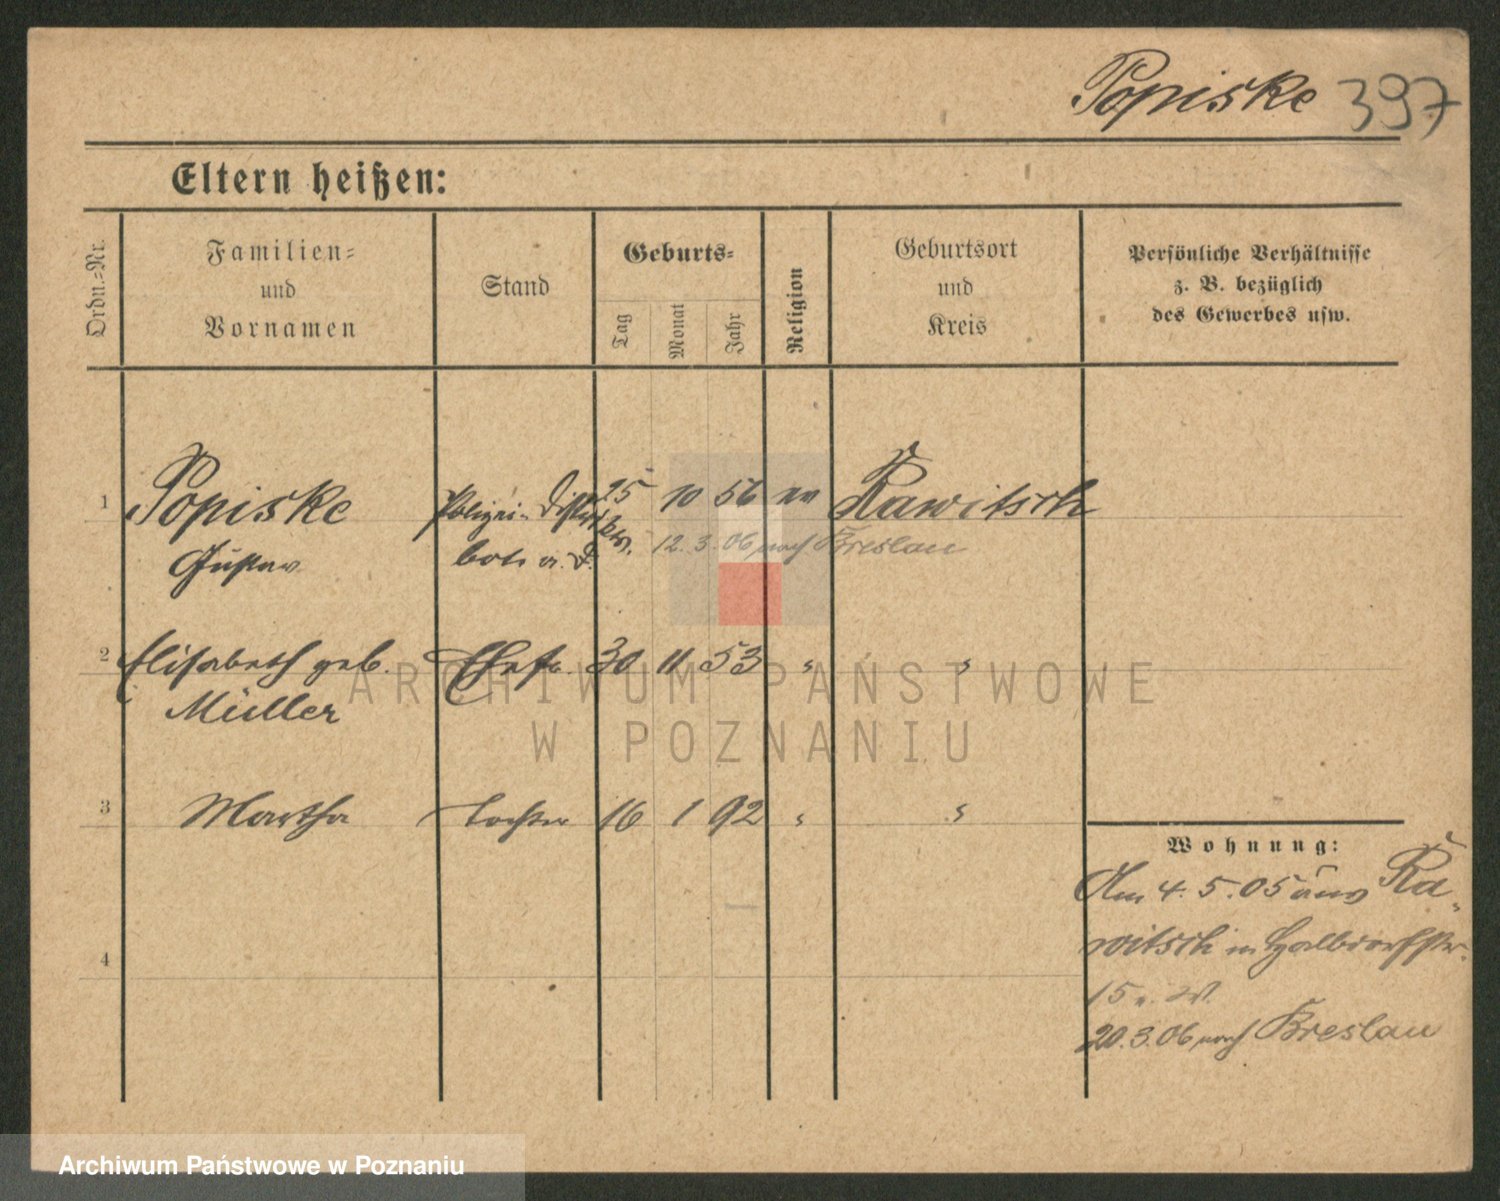 Popiske 397
Eltern heißen:
Ordn.-Nr.
Familien-
und
Vornamen
Stand
Geburts-
Tag
Monat
Jahr
Religion
Geburtsort
und
Kreis
Persönliche Verhältnisse
z. B. bezüglich
des Gewerbes usw.
1 Popiske Polizei- Distrikts 25 10 56 ev Rawitsch
Gustav bote a. D. 12. 3. 06 nach Breslau
2 Elisabeth geb. Ehefr. 30 11 53 " "
Müller
3 Martha Tochter 16 1 92 " "
4
Wohnung:
Am 4. 5. 05 aus Ra-
witsch n Halbdorfstr.
15
20. 3. 06 nach Breslau
ARCHIWUM PAŃSTWOWE
W POZNANIU
Archiwum Państwowe w Poznaniu